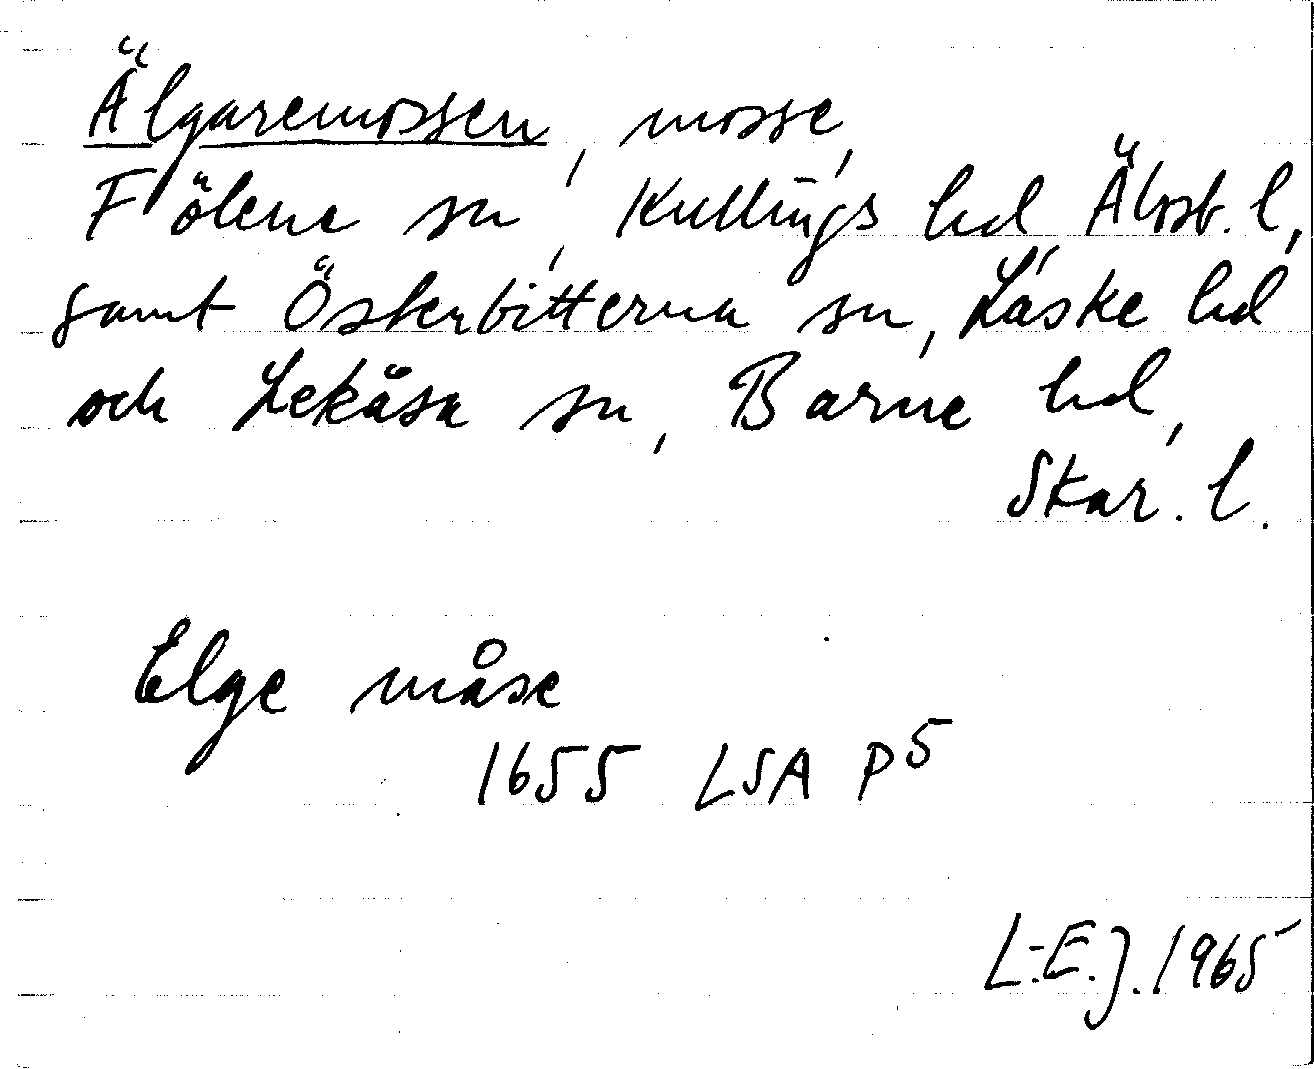 Älgaremossen, mosse,
Fölene sn, Kullings hd, Älvsb. l,
samt Österbitterna sn, Laske hd
och Lekåsa sn, Barne hd,
Skar. l.
Elge måse
1655 LSA P5
L.-E.J. 1965